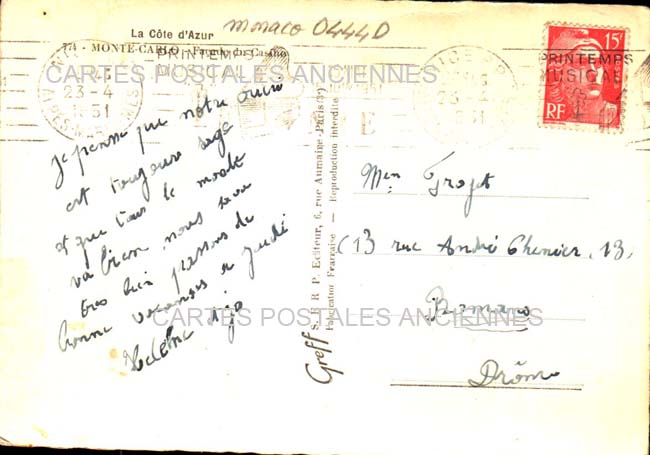 La Côte d'Azur
monaco 0444D
774 - MONTE-CARLO - Façade du Casino
PRINTEMPS MUSICAL
23-4
1951
ALPES-MARITIMES
CARTES POSTALES ANCIENNES
15F
PRINTEMPS
MUSICAL
RF
je pense que notre
est toujours sage
et que tous le monde
va bien nous
tres bien passons de
bonne vacances a jeudi
Helene
S.E.R.P. Editeur, 6, rue Aumaire-Paris(3e)
Fabrication Française - Reproduction interdite
Greff
Men Trojet
(13 rue André Chenier, 13)
Romans
Drôme
CARTES POSTALES ANCIENNES